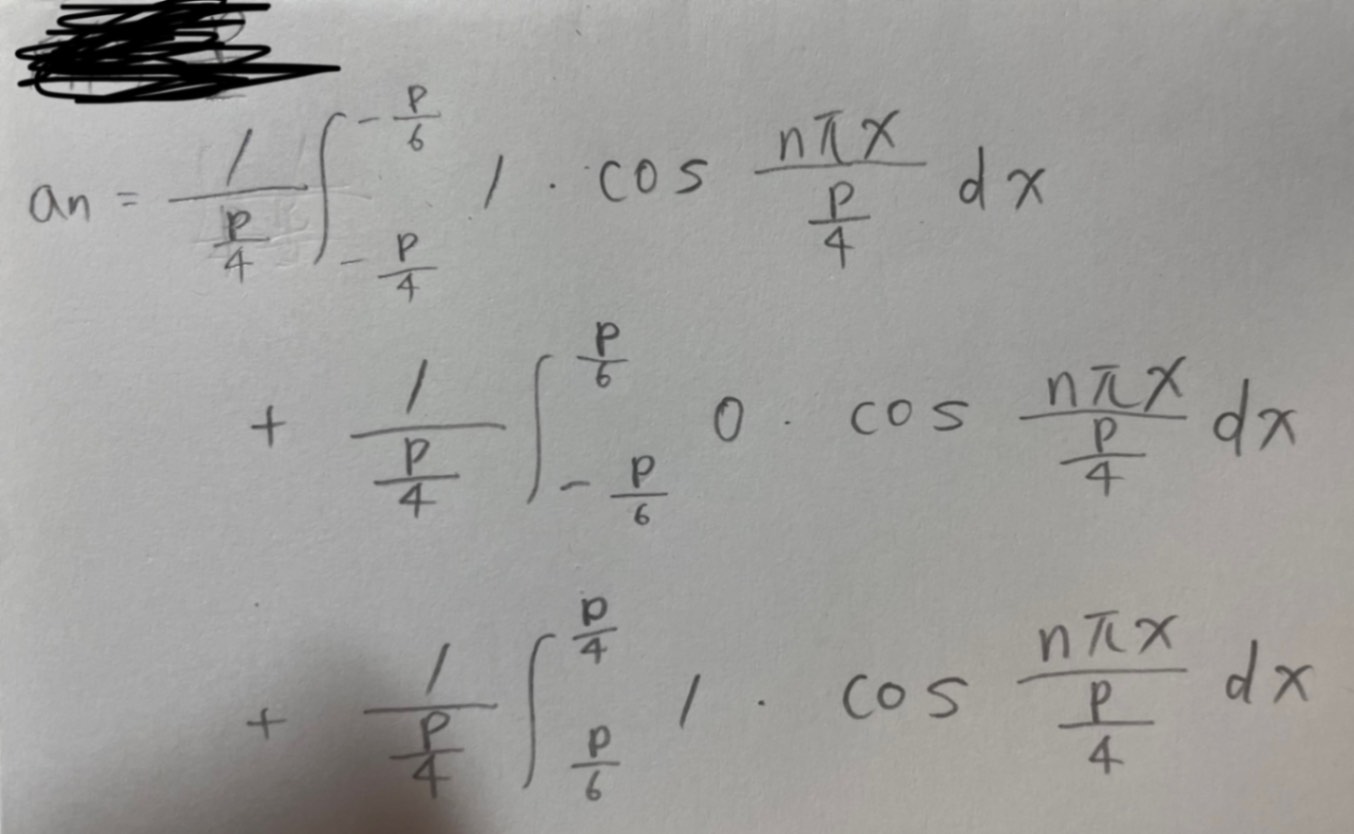 an = 1/(P/4) ∫_{-P/4}^{-P/6} 1 · cos (nπx)/(P/4) dx
+ 1/(P/4) ∫_{-P/6}^{P/6} 0 · cos (nπx)/(P/4) dx
+ 1/(P/4) ∫_{P/6}^{P/4} 1 · cos (nπx)/(P/4) dx